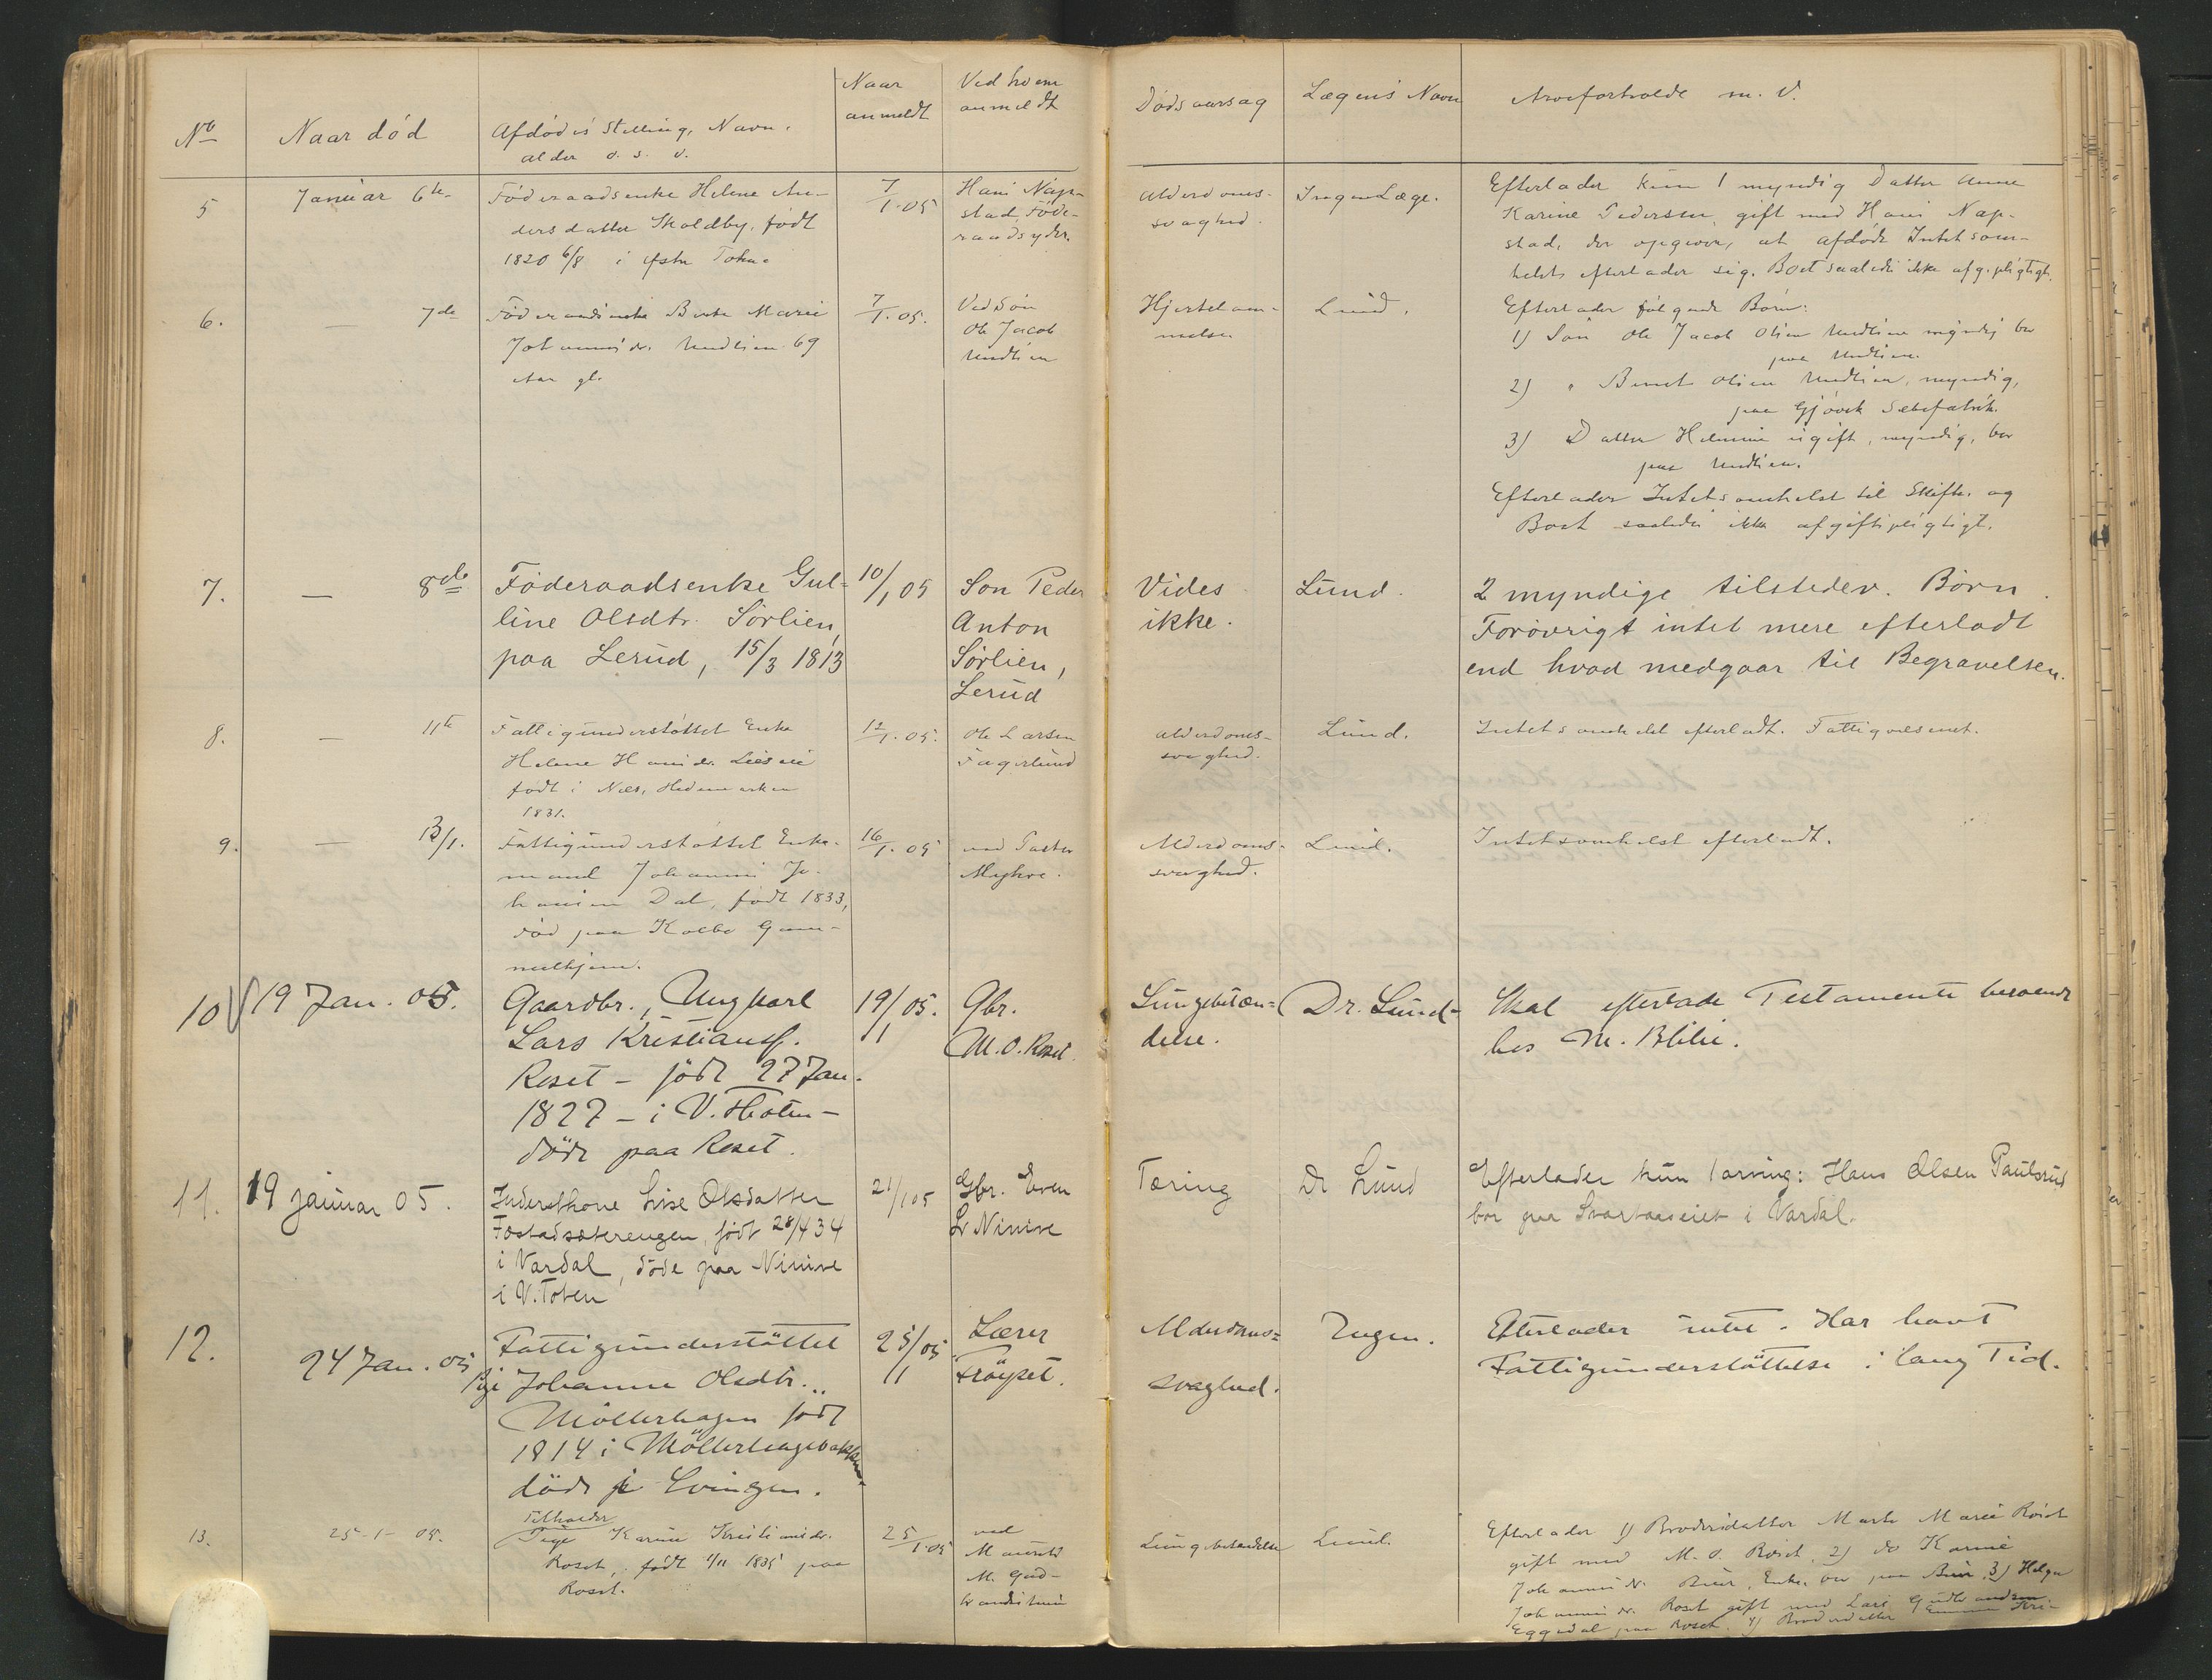 No
Naar död
Afdödes Stilling, Navn,
alder o. s. v.
Naar
anmeldt
Ved hvem
anmeldt
Dødsaarsag
Lægens Navn
Arveforholde m. V.
5
Januar 6te
Föderaadsenke Helene An-
dersdatter Skoldby, født
1820 6/8 i Østre Toten
7/1.05
Hans Nap-
stad, Føde-
raadsyder.
Alderdoms-
svaghed.
Ingen Læge.
Efterlader kun 1 myndig Datter Anne
Karine Pedersen, gift med Hans Nap-
stad, der opgiver, at afdöde Intetsom-
helst efterlader sig. Boet saaledes ikke afg. pligtigt.
6.
— 7de
Föderaadsenke Berte Marie
Johannesdr. Undlien 69
Aar gl.
7/1.05.
Ved Sön
Ole Jacob
Undlien
Hjertelam-
melse
Lund.
Efterlader følgende Børn:
1) Sön Ole Jacob Olsen Undlien myndig bor
paa Undlien.
2) " Bernt Olsen Undlien, myndig,
paa Gjøvik Sæbefabrik.
3) Datter Helmine ugift, myndig, bor
paa Undlien.
Efterlader Intetsomhelst til Skifte og
Boet saaledes ikke afgiftspligtigt.
7.
— 8de
Föderaadsenke Gul-
line Olsdtr. Sörlien,
paa Lerud, 15/3 1813
10/1 05
Son Peder
Anton
Sörlien,
Lerud
Vides
ikke.
Lund.
2 myndige tilstedev. Börn.
Forövrigt intet mere efterladt
end hvad medgaar til Begravelsen.
8.
— 11te
Fattigunderstøttet Enke
Helene Hansdr.
født i Næs, Hedemarken
1831.
12/1.05.
Ole Larsen
Fagerlund
Alderdoms-
svaghed.
Lund.
Intetsomhelst efterladt. Fattigvæsenet.
9.
— 13/1.
Fattigunderstøttet Enke-
mand Johannes Jo-
hansen Dal, født 1833,
död paa Kolbo Gam-
melhjem.
16/1.05
ved Pastor
Alderdoms-
svaghed.
Lund.
Intetsomhelst efterladt.
10
19 Jan. 05.
Gaardbr., Ungkarl
Lars Kristians.
Roset – födt 27 Jan.
1827 – i V. Thoten –
döde paa Roset.
19/1 05.
Gbr.
M. O. Roset.
Lungebetæn=
delse.
Dr. Lund
Skal efterlade Testamente beroende
hos M. Blilie.
11.
19 januar 05.
Inderstkone Lise Olsdatter
Fostadsæterengen, født 28/4 34
i Vardal, døde paa Ninive
i V. Toten
21/1 05
Gbr. Even
Ninive
Tæring
Dr Lund
Efterlader kun 1 arving: Hans Olsen Paulsrud
bor paa Svartaaseiet i Vardal.
12.
24 Jan. 05
Fattigunderstöttet
Pige Johanne Olsdtr.
Möllerhagen född
1814 i Möllerhagebakken
döde i Evingen.
25/1 05
Lærer
Fröyset.
Alderdoms=
svaghed.
Ingen.
Efterlader intet. Har havt
Fattigunderstöttelse i lang Tid.
13.
25-1-05.
Tilholder
Pige Karine Kristiansdr.
Roset, født 1/11 1835 paa
Roset.
25/1.05
ved
M. Gud-
Lungebetændelse
Lund.
Efterlader 1) Brodersdatter Marte Marie Roset
gift med M. O. Roset, 2) do Karine
Johannesdr. Enke, bor paa 3) Helga
Johannesdr. Roset gift med Lars
Eggedal paa Roset. 4) Brodersdatter